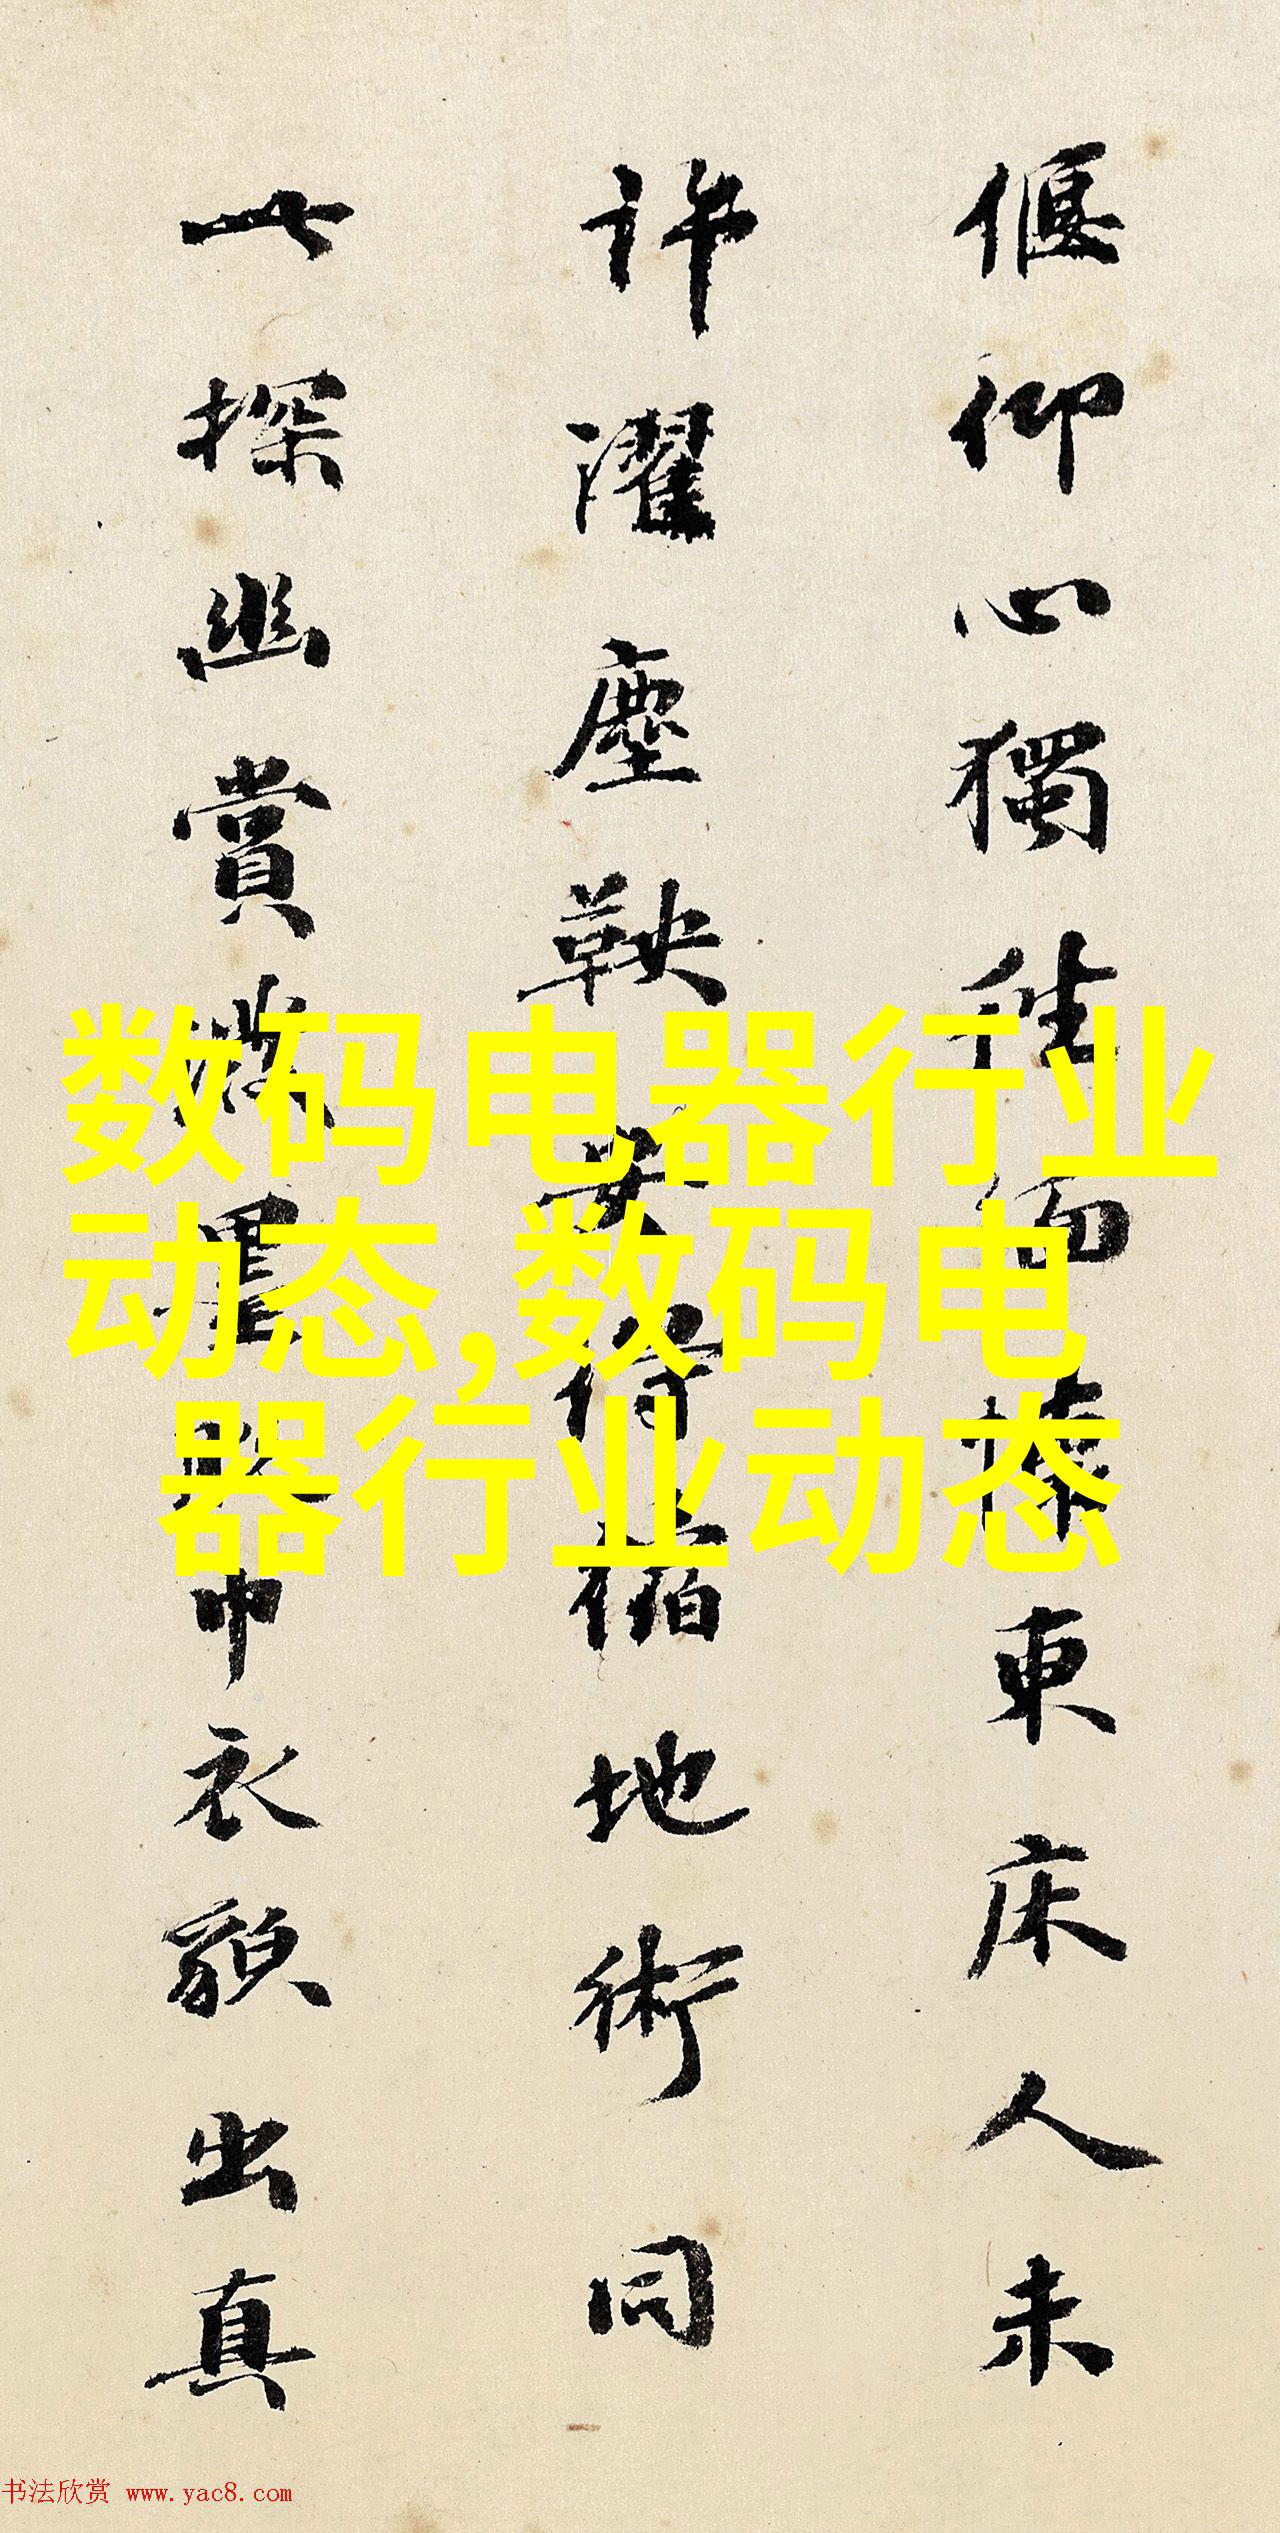 偃仰心獨往
東床人未
許濯塵鞅
循地術同
一探幽賞
巾衣貌出真
数码电器行业
动态,数码电
器行业动态
书法欣赏 www.yac8.com